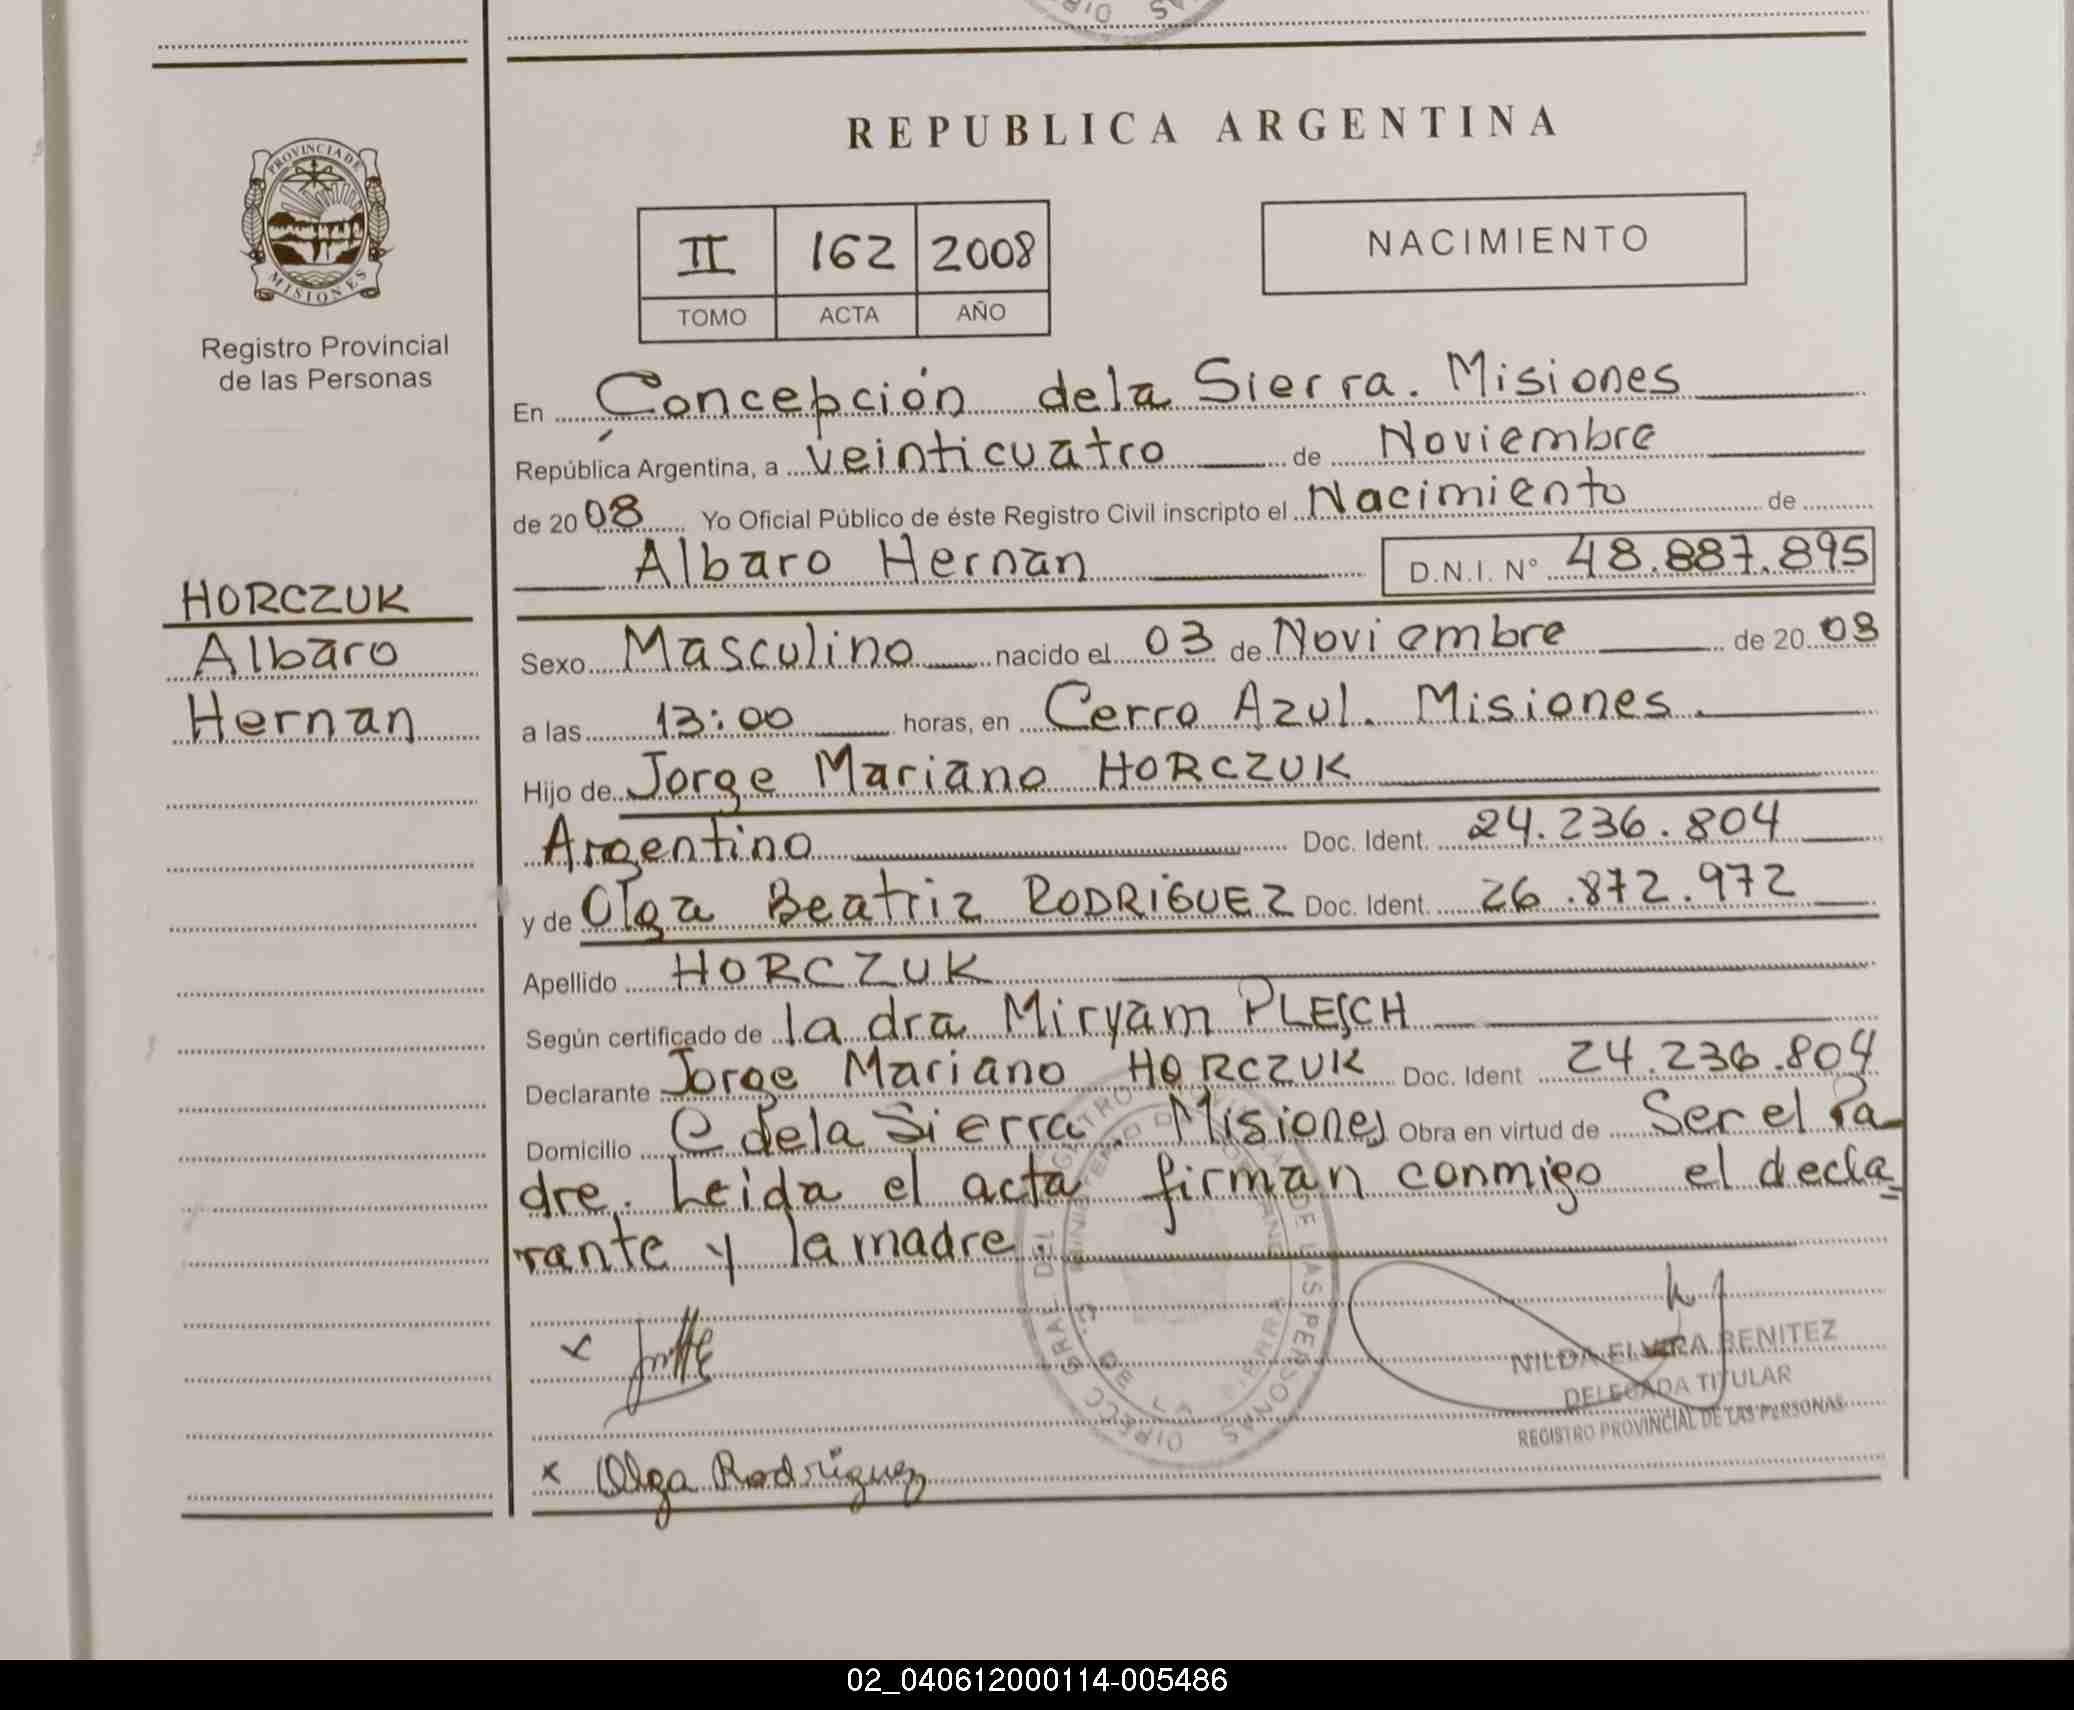 REPUBLICA ARGENTINA
PROVINCIA DE
MISIONES
Registro Provincial
de las Personas
II 162 2008
TOMO ACTA AÑO
NACIMIENTO
En Concepción dela Sierra. Misiones
República Argentina, a veinticuatro de Noviembre
de 2008 Yo Oficial Público de éste Registro Civil inscripto el Nacimiento de
Albaro Hernan D.N.I. N° 48.887.895
HORCZUK
Albaro
Hernan
Sexo Masculino nacido el 03 de Noviembre de 20 08
a las 13:00 horas, en Cerro Azul. Misiones.
Hijo de Jorge Mariano HORCZUK
Argentino Doc. Ident. 24.236.804
y de Olga Beatriz RODRIGUEZ Doc. Ident. 26.872.972
Apellido HORCZUK
Según certificado de la dra Miryam PLESCH
Declarante Jorge Mariano HORCZUK Doc. Ident 24.236.804
Domicilio C dela Sierra. Misiones Obra en virtud de Ser el Pa-
dre. Leida el acta firman conmigo el decla-
rante y la madre.
DIRECC GRAL DEL REGISTRO PROVINCIAL DE LAS PERSONAS
x
NILDA ELVIRA BENITEZ
DELEGADA TITULAR
REGISTRO PROVINCIAL DE LAS PERSONAS
x Olga Rodriguez
02_040612000114-005486